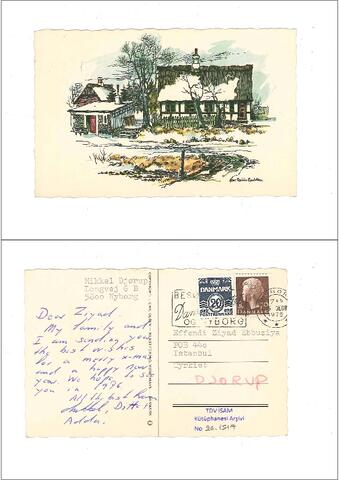 Mikkel Djørup
Longvej 6 B
5800 Nyborg
Dear Ziyad.
My family and
I am sending you
the best wishes
for a merry x-mas
and a happy new
year. We hope to see
you in 1976
All the best from
Mikkel, Ditte
Adda.
BESØ
Dan
OG NYBORG
DANMARK
20
DANMARK
1975
Effendi Ziyad Ebbuziya
POB 446
Istanbul
Tyrkiet
DJORUP
TDV İSAM
Kütüphanesi Arşivi
No 2E.1519